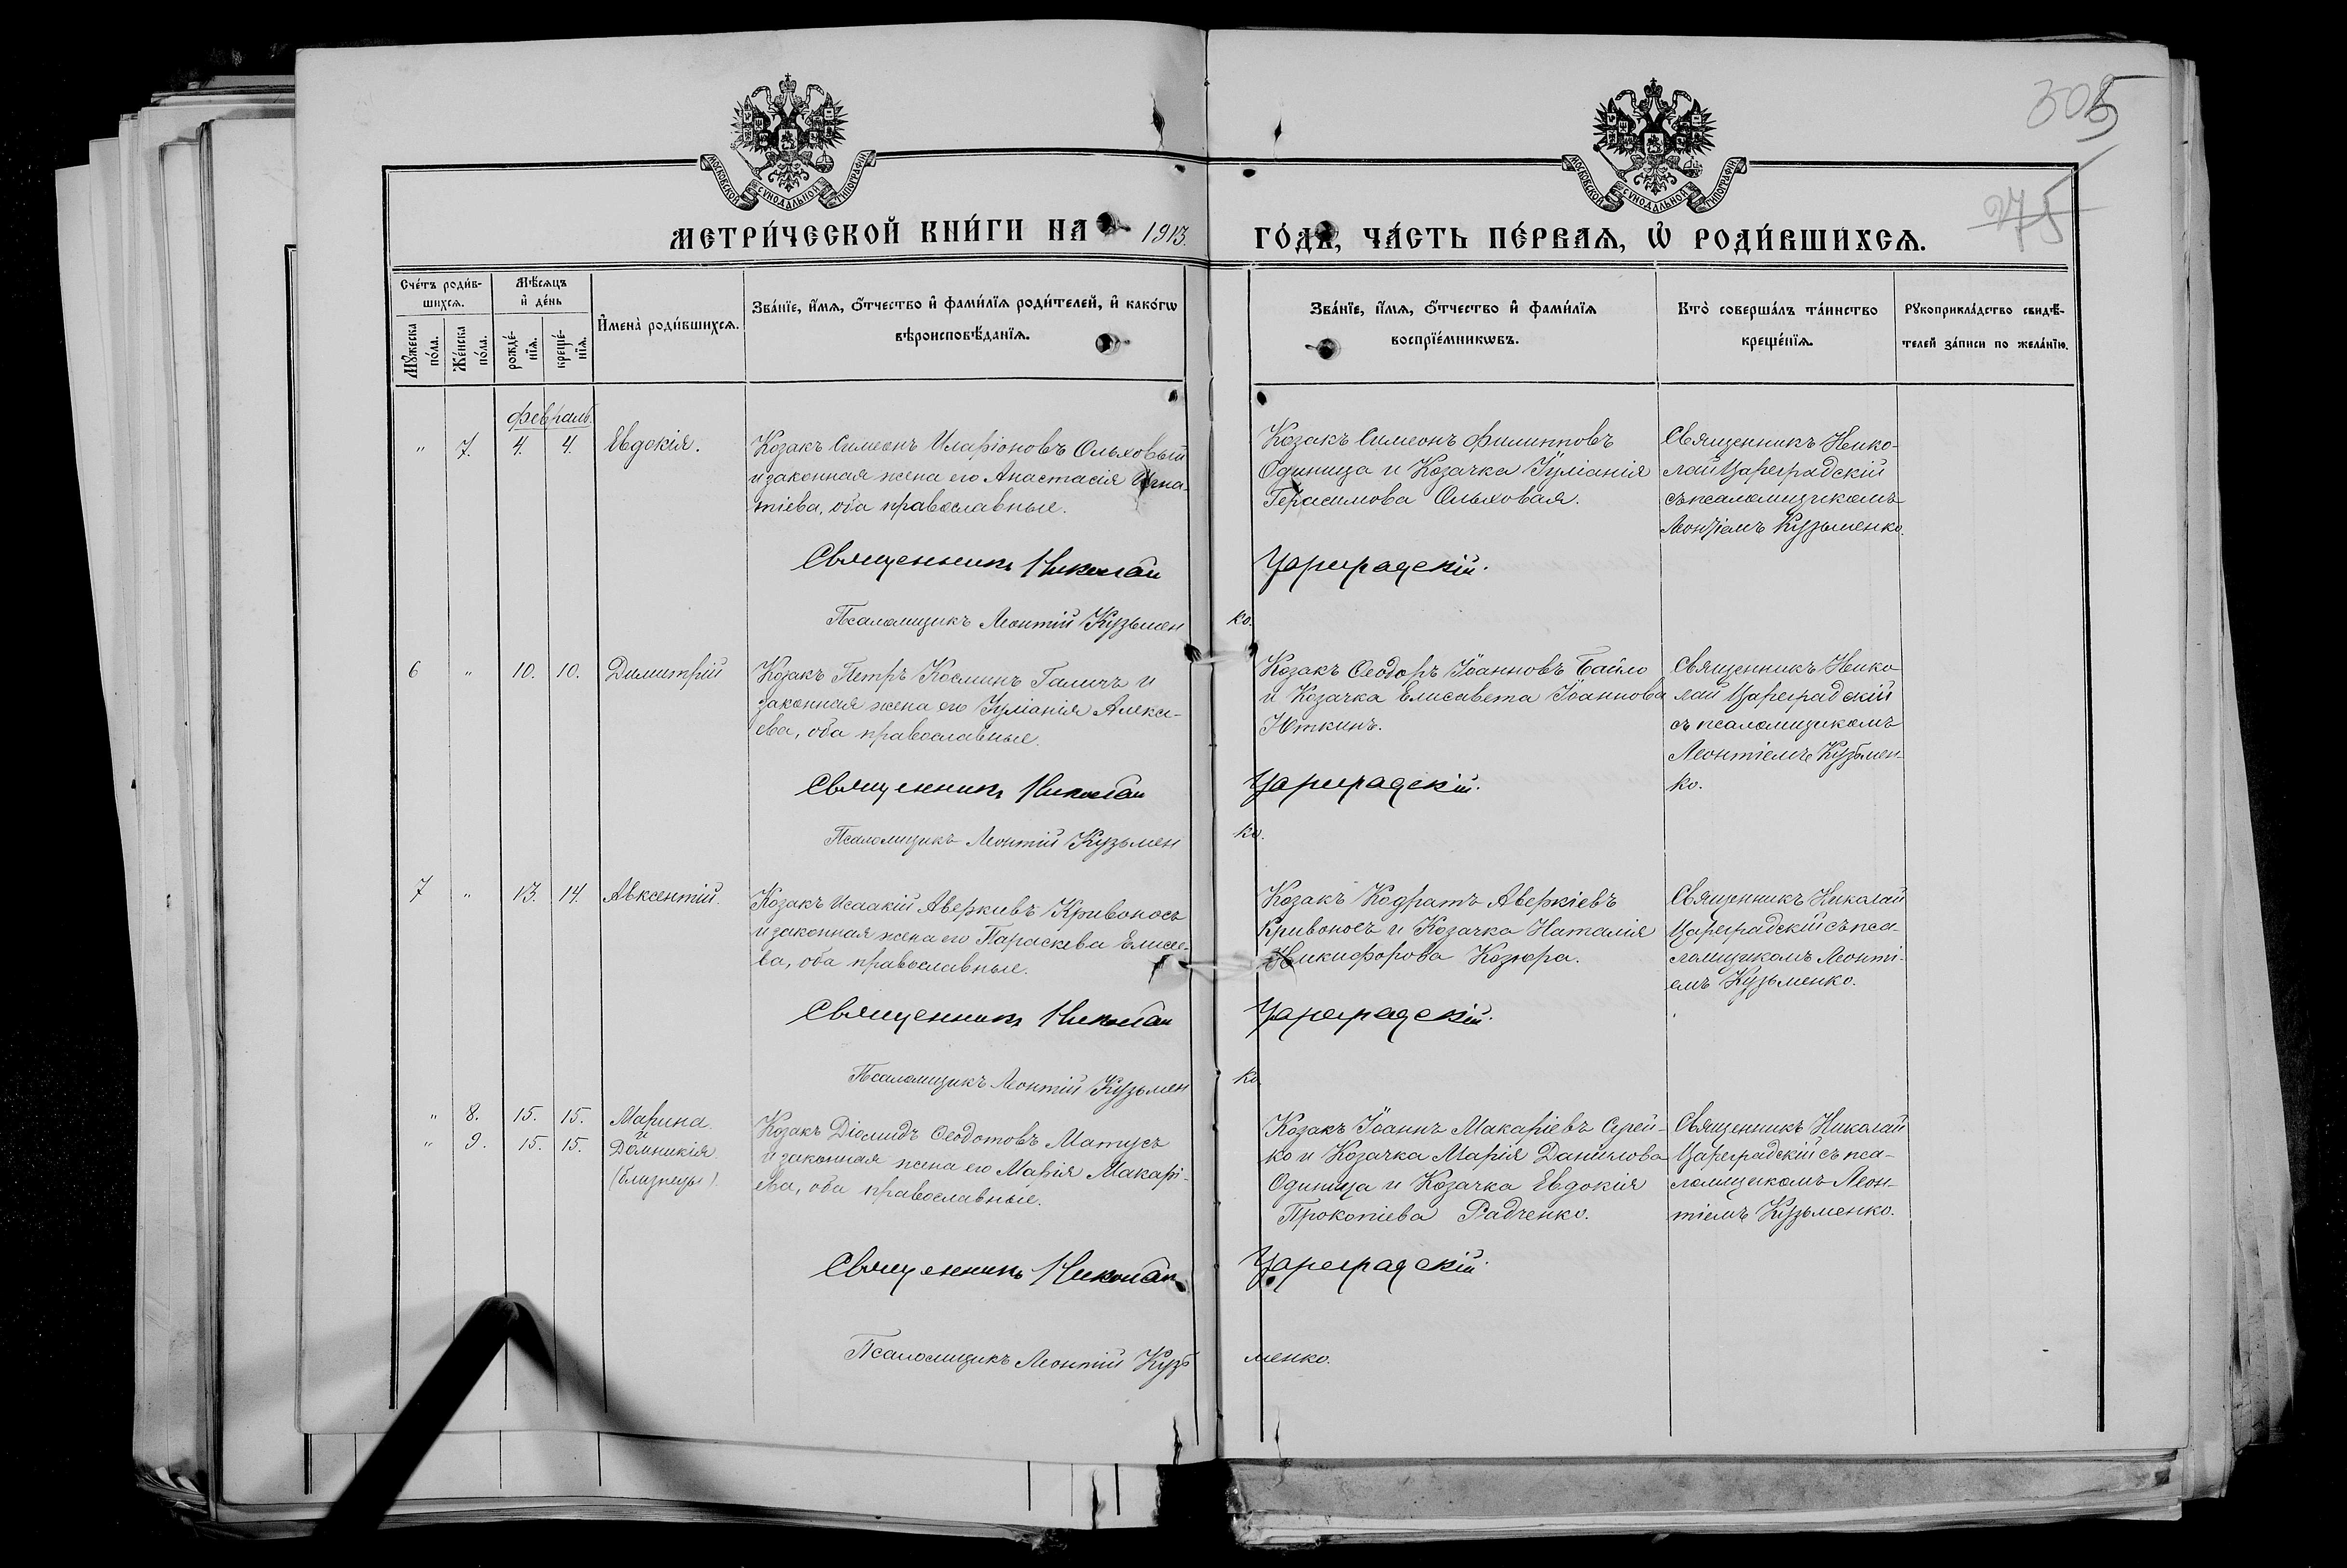 305
275
МОСКОВСКОЙ СУНОДАЛЬНОЙ ТИПОГРАФІИ
МОСКОВСКОЙ СУНОДАЛЬНОЙ ТИПОГРАФІИ
МЕТРИ́ЧЕСКОЙ КНИ́ГИ НА 1913. ГО́ДА, ЧА́СТЬ ПЕ́РВАѦ, Ѡ РОДИ́ВШИХСѦ.
Сче́тъ роди́в-
шихсѧ.
Мꙋжеска по́ла.
Же́нска по́ла.
Мѣ́сѧцъ
и҆ де́нь
рожде́-
нїѧ.
креще́-
нїѧ.
И҆мена̀ роди́вшихсѧ.
Зва́нїе, и҆́мѧ, ѻ҆́тчество и҆ фами́лїѧ роди́телей, и҆ како́гѡ
вѣроисповѣ́данїѧ.
Зва́нїе, и҆́мѧ, ѻ҆́тчество и҆ фами́лїѧ
воспрїе́мникѡвъ.
Кто̀ соверша́лъ та́инство
креще́нїѧ.
Рꙋкоприкла́дство свидѣ́-
телей за́писи по жела́нїю.
февраль.
" 7. 4. 4. Евдокія.
Козакъ Симеонъ Иларіоновъ Ольховый
и законная жена его Анастасія Игна-
тіева, оба православные.
Козакъ Симеонъ Филипповъ
Одиница и Козачка Іуліанія
Герасимова Ольховая.
Священникъ Нико-
лай Цареградскій
съ псаломщикомъ
Леонтіемъ Кузьменко.
Священникъ Николай Цареградскій.
Псаломщикъ Леонтій Кузьменко.
6 " 10. 10. Димитрій
Козакъ Петръ Косминъ Галичъ и
законная жена его Іуліанія Алексі-
ева, оба православные.
Козакъ Ѳеодоръ Іоанновъ Байло
и Козачка Елисавета Іоаннова
Юткинъ.
Священникъ Нико
лай Цареградскій
съ псаломщикомъ
Леонтіемъ Кузьмен-
ко.
Священникъ Николай Цареградскій.
Псаломщикъ Леонтій Кузьменко.
7 " 13. 14. Авксентій.
Козакъ Исаакій Аверкіевъ Кривоносъ
и законная жена его Параскева Елисее-
ва, оба православные.
Козакъ Кодратъ Аверкіевъ
Кривоносъ и Козачка Наталія
Никифорова Козюра.
Священникъ Николай
Цареградскій съ пса-
ломщикомъ Леонті-
емъ Кузьменко.
Священникъ Николай Цареградскій.
Псаломщикъ Леонтій Кузьменко
" 8. 15. 15. Марина
и
" 9. 15. 15. Домникія
(близнецы).
Козакъ Діомидъ Ѳеодотовъ Матусъ
и законная жена его Марія Макарі-
ева, оба православные.
Козакъ Іоаннъ Макаріевъ Сергей-
ко и Козачка Марія Данилова
Одиница и Козачка Евдокія
Прокопіева Радченко.
Священникъ Николай
Цареградскій съ пса-
ломщикомъ Леон-
тіемъ Кузьменко.
Священникъ Николай Цареградскій.
Псаломщикъ Леонтій Кузьменко.